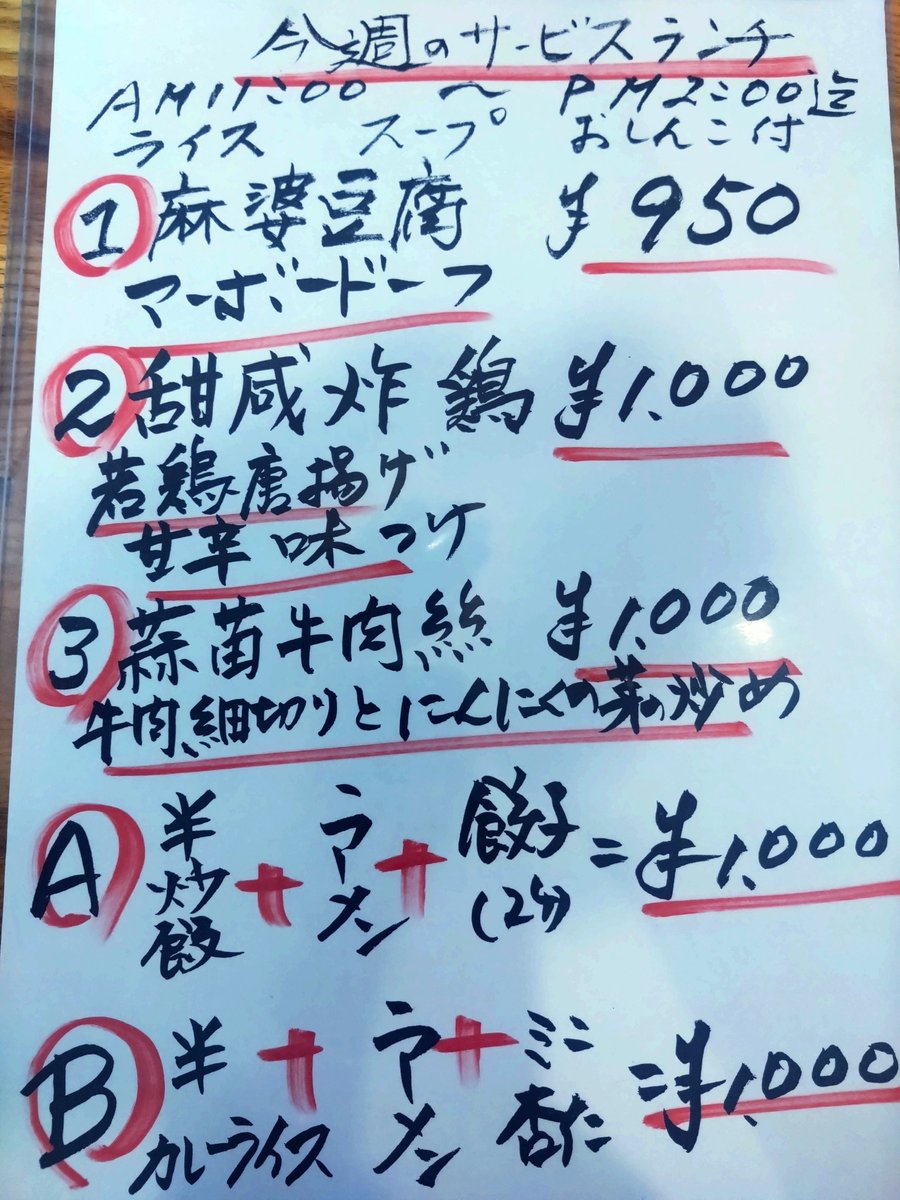 今週のサービスランチ
AM11:00 〜 PM2:00迄
ライス スープ おしんこ付
① 麻婆豆腐 ¥950
マーボードーフ
② 甜咸炸鶏 ¥1,000
若鶏唐揚げ
甘辛味つけ
③ 蒜苗牛肉絲 ¥1,000
牛肉細切りとにんにくの芽の炒め
Ⓐ 半炒飯 + ラーメン + 餃子(2ケ) = ¥1,000
Ⓑ 半カレーライス + ラーメン + ミニ杏仁 = ¥1,000